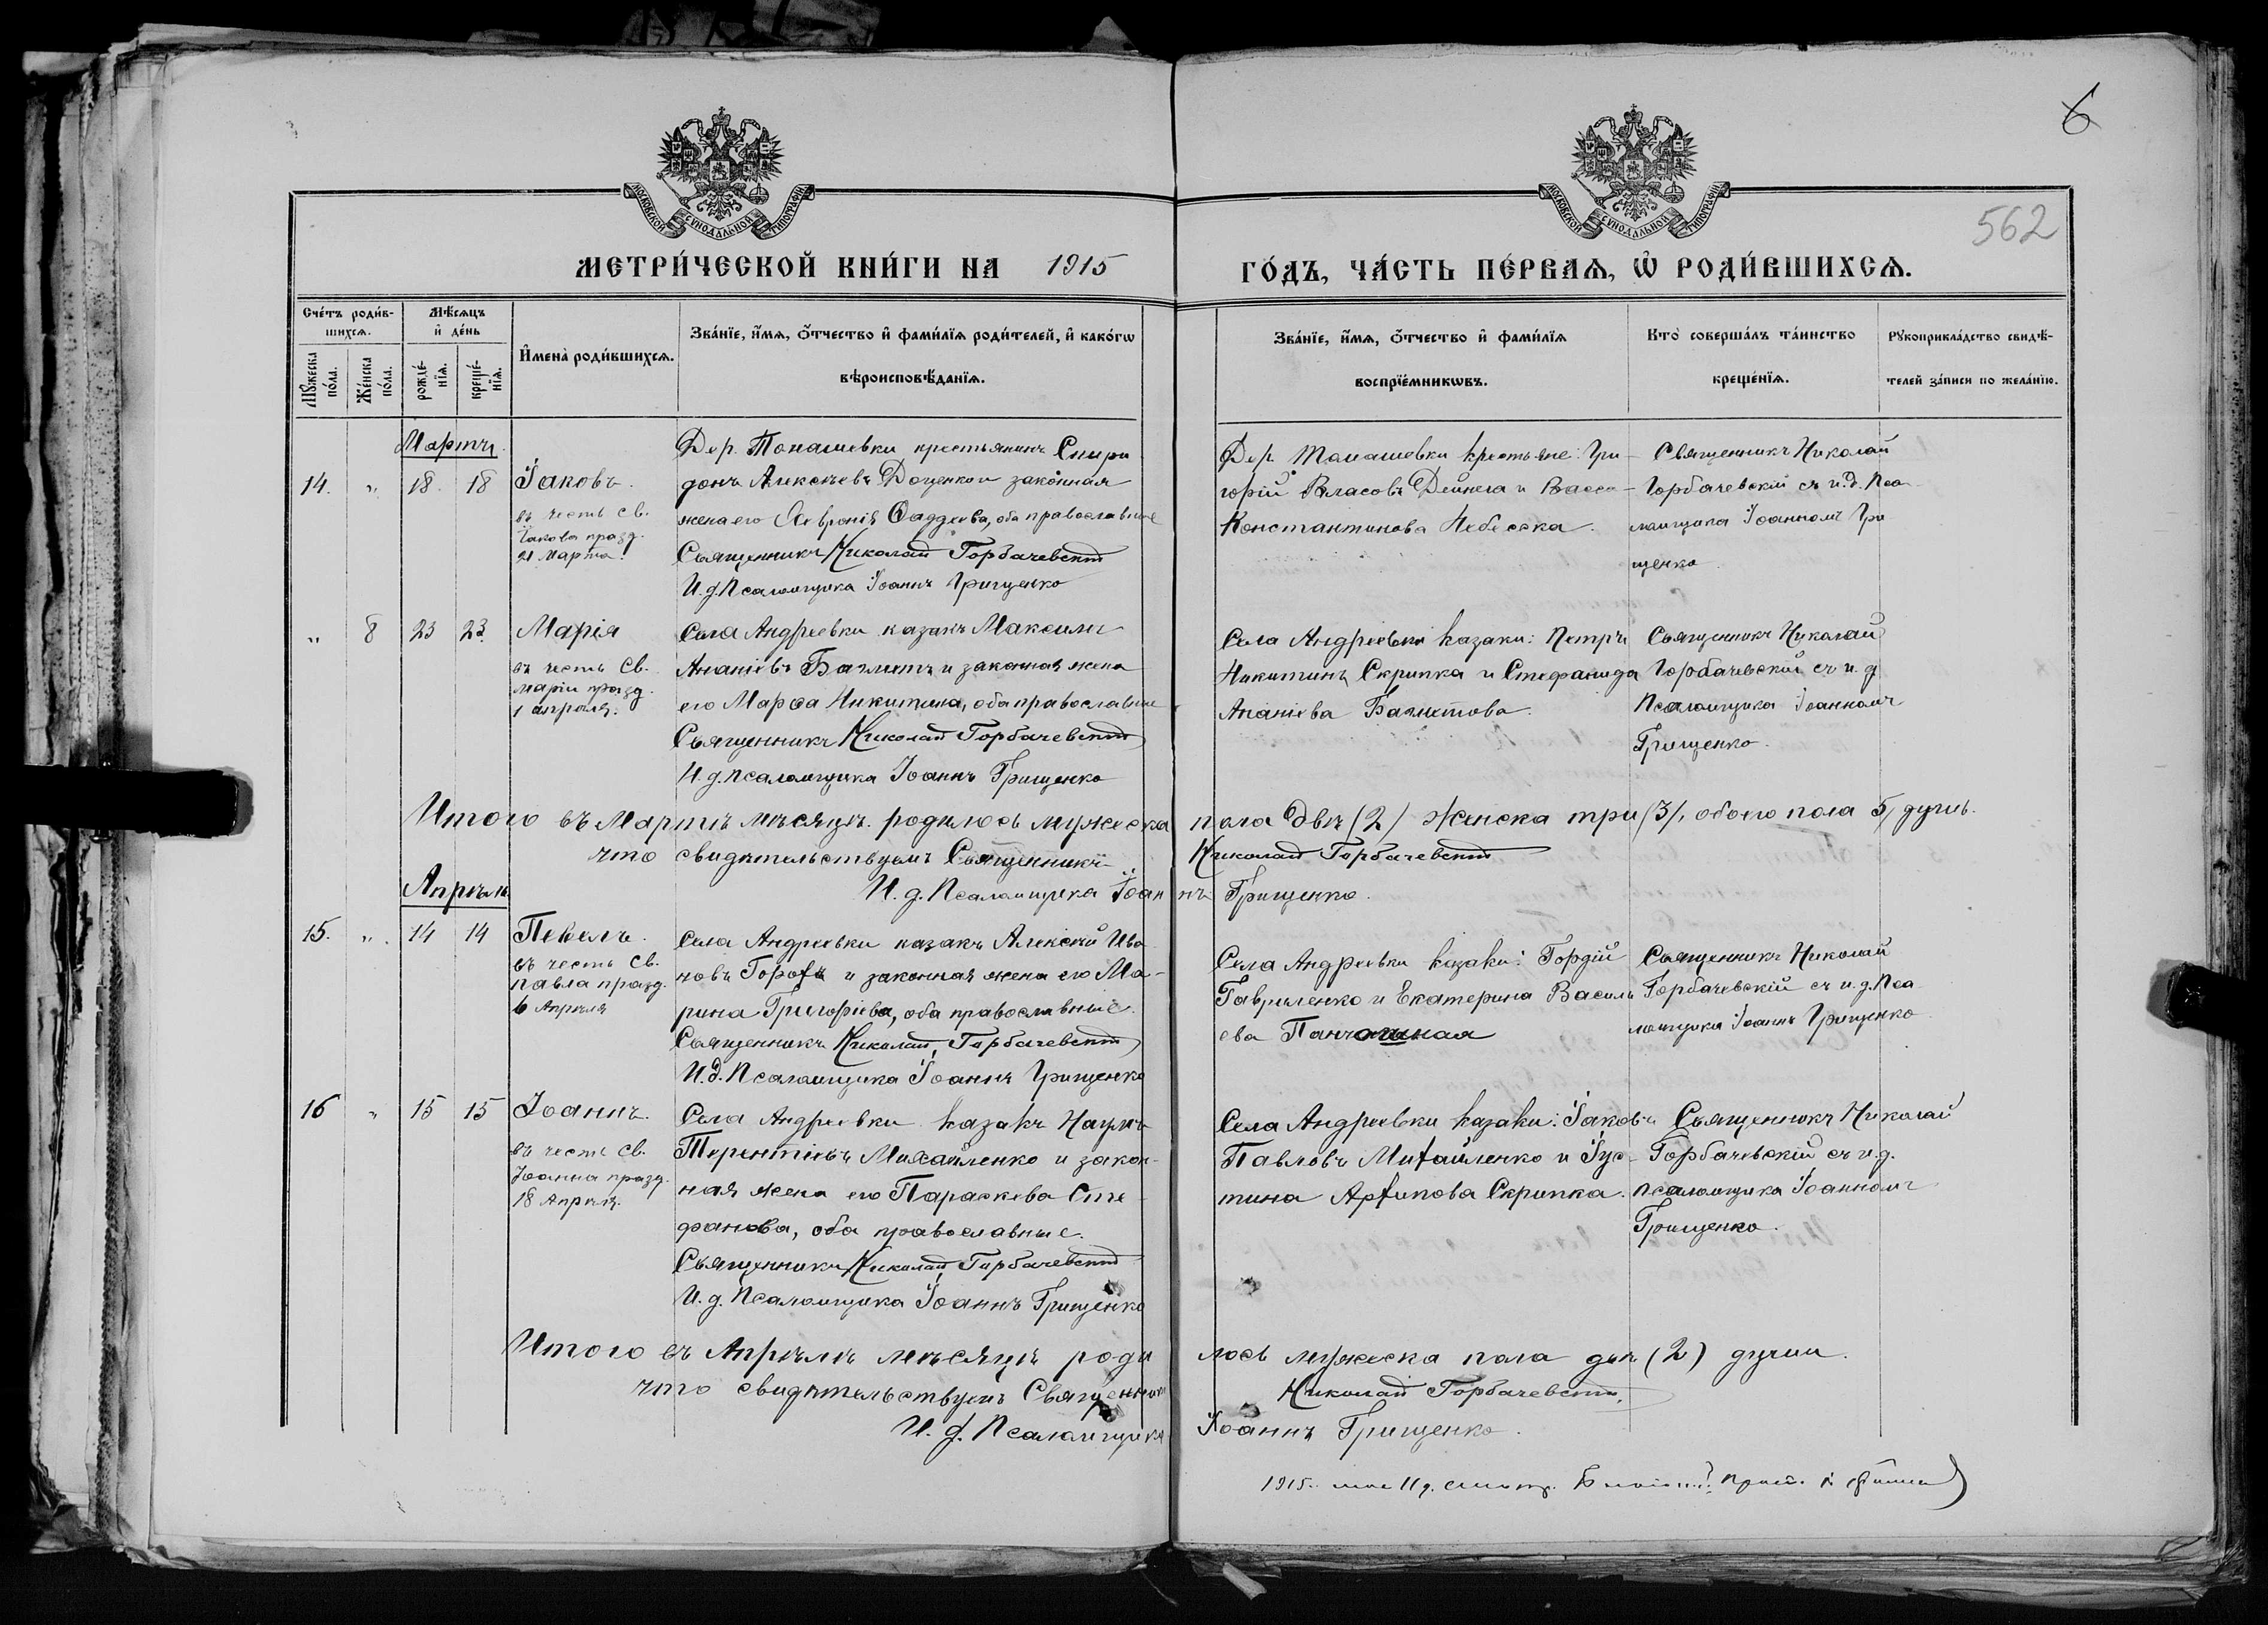 6
562
МОСКОВСКОЙ СѴНОДАЛЬНОЙ ТИПОГРАФІИ
МОСКОВСКОЙ СѴНОДАЛЬНОЙ ТИПОГРАФІИ
МЕТРИ́ЧЕСКОЙ КНИ́ГИ НА 1915
ГО́ДЪ, ЧА́СТЬ ПЕ́РВАЯ, Ѽ РОДИ́ВШИХСЯ.
Сче́тъ роди́в-
шихся.
Мѣ́сяцъ
и҆ де́нь
Мꙋ́жеска
по́ла.
Же́нска
по́ла.
рожде́-
нїя.
креще́-
нїя.
И҆мена̀ роди́вшихся.
Зва́нїе, и҆́мя, о҆́тчество и҆ фами́лїя роди́телей, и҆ како́гѡ
вѣроисповѣ́данїя.
Зва́нїе, и҆́мя, о҆́тчество и҆ фами́лїя
воспрїе́мникѡвъ.
Кто̀ соверша́лъ та́инство
креще́нїя.
Рꙋкоприкла́дство свидѣ́-
телей за́писи по жела́нїю.
Мартъ.
14. " 18 18 Іаковъ.
въ честь св.
Іакова празд.
21 марта.
Дер. Томашевки крестьянинъ Спири
донъ Алексѣевъ Доценко и законная
жена его Февронія Ѳаддеева, оба православные
Священникъ Николай Горбачевскій
И. д. Псаломщика Іоаннъ Грищенко
Дер. Томашевки крестьяне: Гри-
горій Власовъ Дейнега и Васса
Константинова Небеска.
Священникъ Николай
Горбачевскій съ и. д. Пса
ломщика Іоанномъ Гри
щенко
" 8 23 23. Марія
въ честь Св.
Маріи празд.
1 апрѣля.
Села Андреевки казакъ Максимъ
Ананіевъ Багметъ и законная жена
его Марѳа Никитина, оба православные
Священникъ Николай Горбачевскій
И. д. Псаломщика Іоаннъ Грищенко
Села Андреевки казаки: Петръ
Никитинъ Скрипка и Стефанида
Ананіева Багметова.
Священникъ Николай
Горбачевскій съ и. д.
Псаломщика Іоанномъ
Грищенко.
Итого въ Мартѣ мѣсяцѣ родилось мужеска пола двѣ (2) женска три (3), обоего пола 5, душъ.
что свидѣтельствуемъ Священникъ Николай Горбачевскій
И. д. Псаломщика Іоаннъ Грищенко.
Апрѣль
15. " 14 14 Павелъ.
въ честь св.
павла празд.
6 Апрѣля
Села Андреевки казакъ Алексѣй Ива
новъ Горохъ и законная жена его Ма-
рина Григоріева, оба православные.
Священникъ Николай Горбачевскій
И. д. Псаломщика Іоаннъ Грищенко
Села Андреевки казаки: Гордій
Гавриленко и Екатерина Василь
ева
Священникъ Николай
Горбачевскій съ и. д. Пса
ломщика Іоаннъ Грищенко
16 " 15 15 Іоаннъ.
въ честь св.
Іоанна празд.
18 Апрѣля.
Села Андреевки казакъ Наумъ
Терентіевъ Михайленко и закон-
ная жена его Параскева Сте-
фанова, оба православные.
Священникъ Николай Горбачевскій
И. д. Псаломщика Іоаннъ Грищенко
Села Андреевки казаки: Іаковъ
Павловъ Михайленко и Іус-
тина Архипова Скрипка.
Священникъ Николай
Горбачевскій съ и. д.
псаломщика Іоанномъ
Грищенко.
Итого въ Апрѣлѣ мѣсяцѣ родилось мужеска пола двѣ (2) души.
что свидѣтельствуемъ Священникъ Николай Горбачевскій.
И. д. Псаломщика Іоаннъ Грищенко.
1915